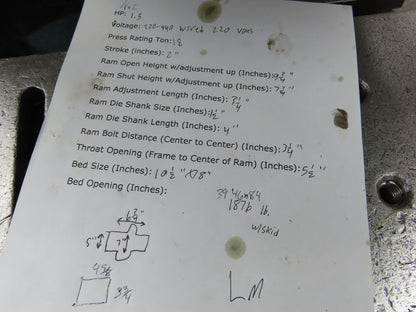 HP: 1.5
Voltage: 220-440 wired 220 volts
Press Rating Ton:
Stroke (inches): 2"
Ram Open Height w/adjustment up (Inches): 9 3/4"
Ram Shut Height w/adjustment up (Inches): 7 3/4"
Ram Adjustment Length (Inches): 3 1/4"
Ram Die Shank Size (Inches): 1 1/2"
Ram Die Shank Length (Inches): 4"
Ram Bolt Distance (Center to Center) (Inches): 3 1/4"
Throat Opening (Frame to Center of Ram) (Inches): 5 1/2"
Bed Size (Inches): 10 1/2" x 18"
Bed Opening (Inches):
1876 lb.
w/skid
5"
7"
3 3/4
LM